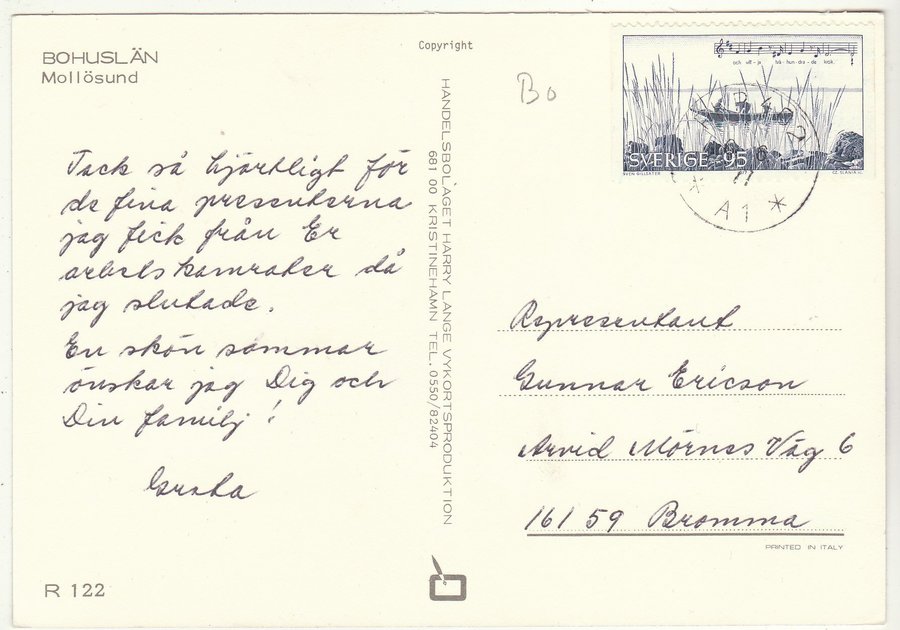 BOHUSLÄN
Mollösund
Copyright
Bo
och ull-ja bå-hun-dra-de kick.
SVERIGE 95
SVEN BILLQVIST
CZ. SLANIA SC.
A1 *
Tack så hjärtligt för
de fina presenterna
jag fick från Er
arbetskamrater då
jag slutade.
En skön sommar
önskar jag Dig och
Din familj!
Greta
HANDELSBOLAGET HARRY LANGE VYKORTSPRODUKTION
681 00 KRISTINEHAMN TEL. 0550/82404
Representant
Gunnar Ericson
Arvid Mörnes Väg 6
161 59 Bromma
PRINTED IN ITALY
R 122